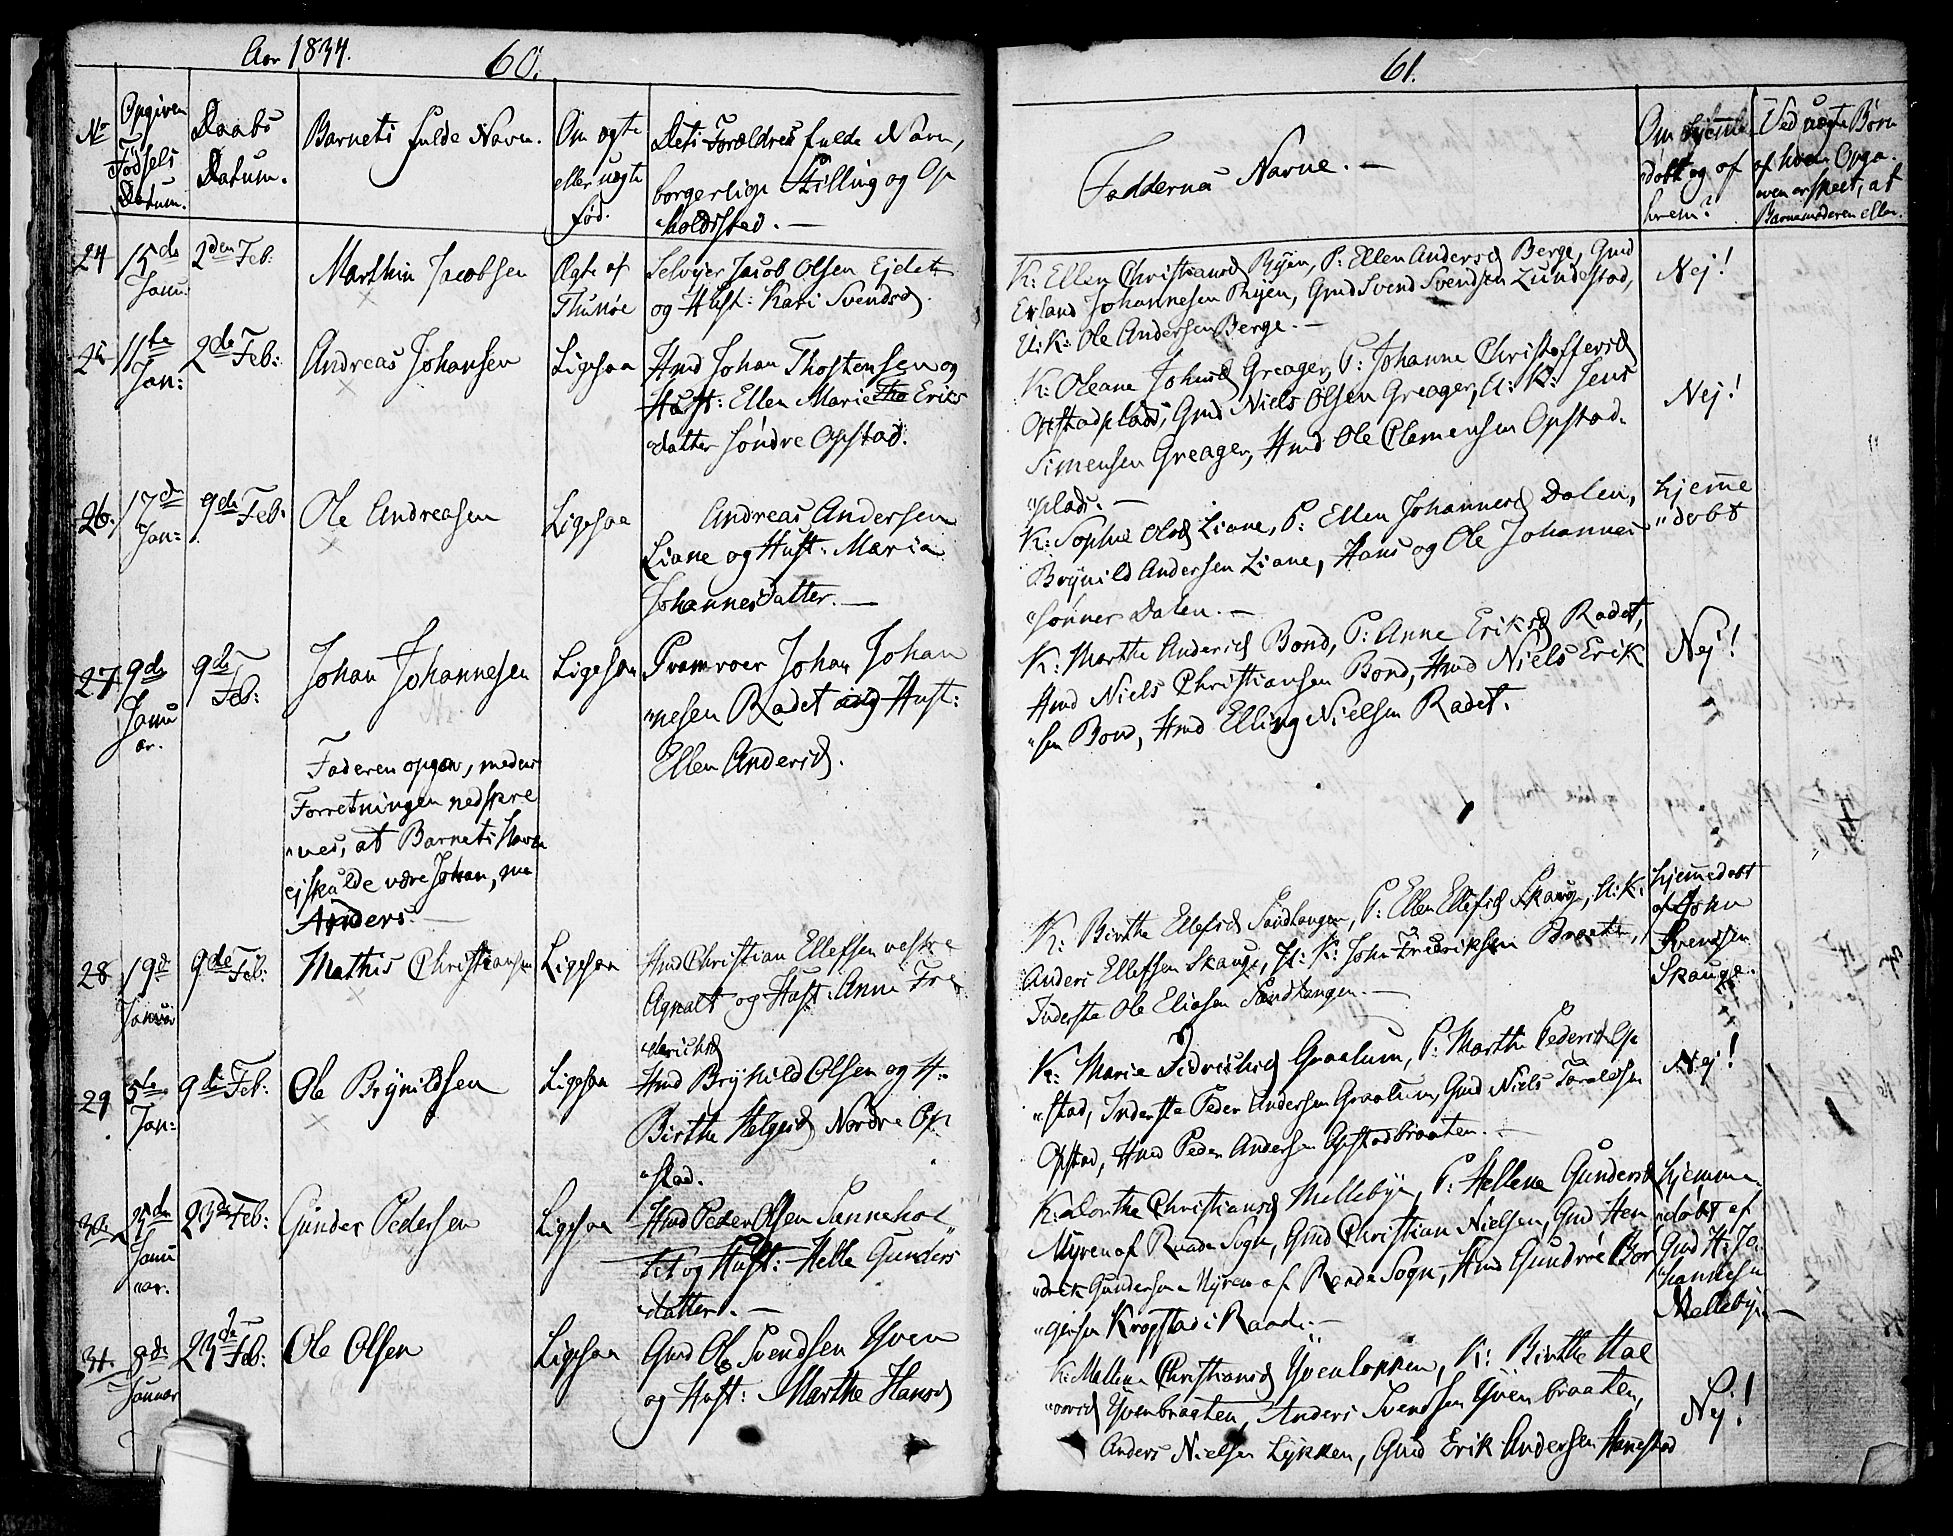 Aar 1834.
60.
No
Opgiven
Fødsels
Datum.
Daabs
Datum.
Barnets fulde Navn.
Om ægte
eller uægte
fød.
Dets Forældres fulde Navn,
borgerlige Stilling og Op
"holdssted. —
24
15de
Janu:
2den Feb:
Marthin Jacobsen
Ægte af
Selvejer Jacob Olsen
og Hust: Kari Svendsd.
25
11te
Jan:
2de Feb:
Andreas Johansen
Ligesaa
Hmd Johan Thostensen og
Hust: Ellen Marie Eriks
"datter Søndre Opstad.
26.
17de
Jan:
9de Feb:
Ole Andreasen
Ligesaa
Andreas Andersen
Liane og Hust: Maria
Johannesdatter. —
27.
9de
Janu
ar.
9de
Feb:
Johan Johannesen
Ligesaa
Pramroer Johan Johan
"nesen Radet og Hust:
Ellen Andersd.
Faderen opgav, medens
Forretningen nedskre
"ves, at Barnets Navn
ej skulde være Johan, men
Anders. —
28
19de
Januar
9de Feb:
Mathis Christiansen
Ligesaa
Hmd Christian Ellefsen vestre
Agnalt og Hust: Anne Fre
"derichsd
29
5te
Jan:
9de Feb:
Ole Brynildsen
Ligesaa
Hmd Brynild Olsen og H:
Birthe Helgesd Nordre Op
"stad.
30.
25de
Janu
"ar.
23de Feb:
Gunder Pedersen
Ligesaa
Hmd Peder Olsen Sannehol
"tet og Hust: Helle Gunders
"datter. —
31.
8de
Januar
23de Feb:
Ole Olsen
Ligesaa
Gmd Ole Svendsen Yven
og Hust: Marthe Hansd
61.
Faddernes Navne. —
Om hjemme
døbt og af
hvem?
Ved uægte Børn
af hvem Opga
"ven er skeet, at
Barnemoderen eller
K: Ellen Christiansd Ryen, P: Ellen Andersd Berge, Gmd
Erland Johannesen Ryen, Gmd Svend Svendsen Lundestad,
U: K: Ole Andersen Berge. —
Nej!
K: Oleane Johnsd Greager, P: Johanne Christoffersd
Opstadplads, Gmd Niels Olsen Greager, U: K: Jens
Simensen Greager, Hmd Ole Clemensen Opstad
"plads. —
Nej!
K: Sophie Olsd Liane, P: Ellen Johannesd Dalen,
Brynild Andersen Liane, Hans og Ole Johannes
"sønner Dalen. —
hjemme
"døbt
K: Marthe Andersd Bond, P: Anne Eriksd Radet,
Hmd Niels Christiansen Bond, Hmd Niels Erik
"sen Bond, Hmd Elling Nielsen Radet.
Nej!
K: Birthe Ellefsd Sandtangen, P: Ellen Ellefsd Skauge, U: K:
Anders Ellefsen Skauge, U: K: John Fredriksen Braate,
Inderste Ole Eliasen Sandtangen. —
hjemmedøbt
af John
Svendsen
Skauge.
K: Marie Fredrichsd Graalum, P: Marthe Pedersd Op
"stad, Inderste Peder Andersen Graalum, Gmd Niels Taraldsen
Opstad, Hmd Peder Andersen Opstadbraaten. —
Nej!
K: Dorthe Christiansd Mellebye, P: Hellene Gundersd
Myren af Raade Sogn, Gmd Christian Nielsen, Gmd Hen
"drik Gundersen Myren af Raade Sogn, Hmd Gundroe Bør
"gersen Krogstad i Raade. —
hjemme
"døbt af
Gmd H: Jo
"hannesen
Mellebye —
K: Mellina Christiansd Yvenløkken, K: Birthe Hal
"vorsd Yvenbraaten, Anders Svendsen Yvenbraaten,
Anders Nielsen Løkken, Gmd Erik Andersen Hanestad
Nej!